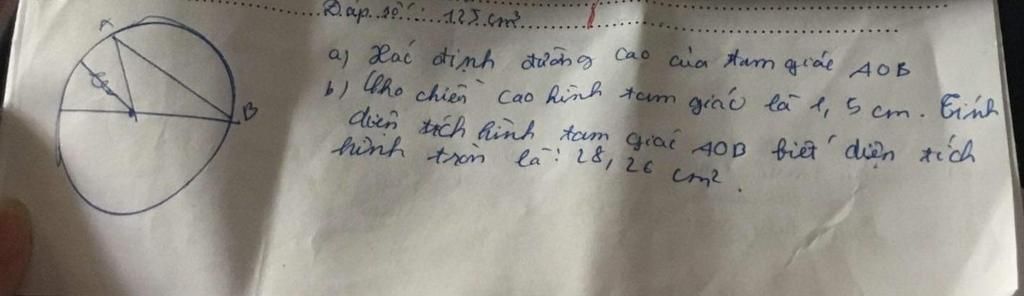 Đáp số: 125 cm³
a) Xác định đường cao của tam giác AOB
b) Cho chiều cao hình tam giác là 1,5 cm. Tính
diện tích hình tam giác AOB biết diện tích
hình tròn là: 28,26 cm².
A
B